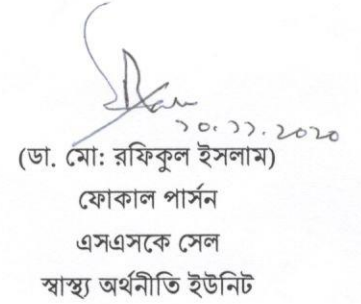 ১০.১১.২০২০
(ডা. মো: রফিকুল ইসলাম)
ফোকাল পার্সন
এসএসকে সেল
স্বাস্থ্য অর্থনীতি ইউনিট